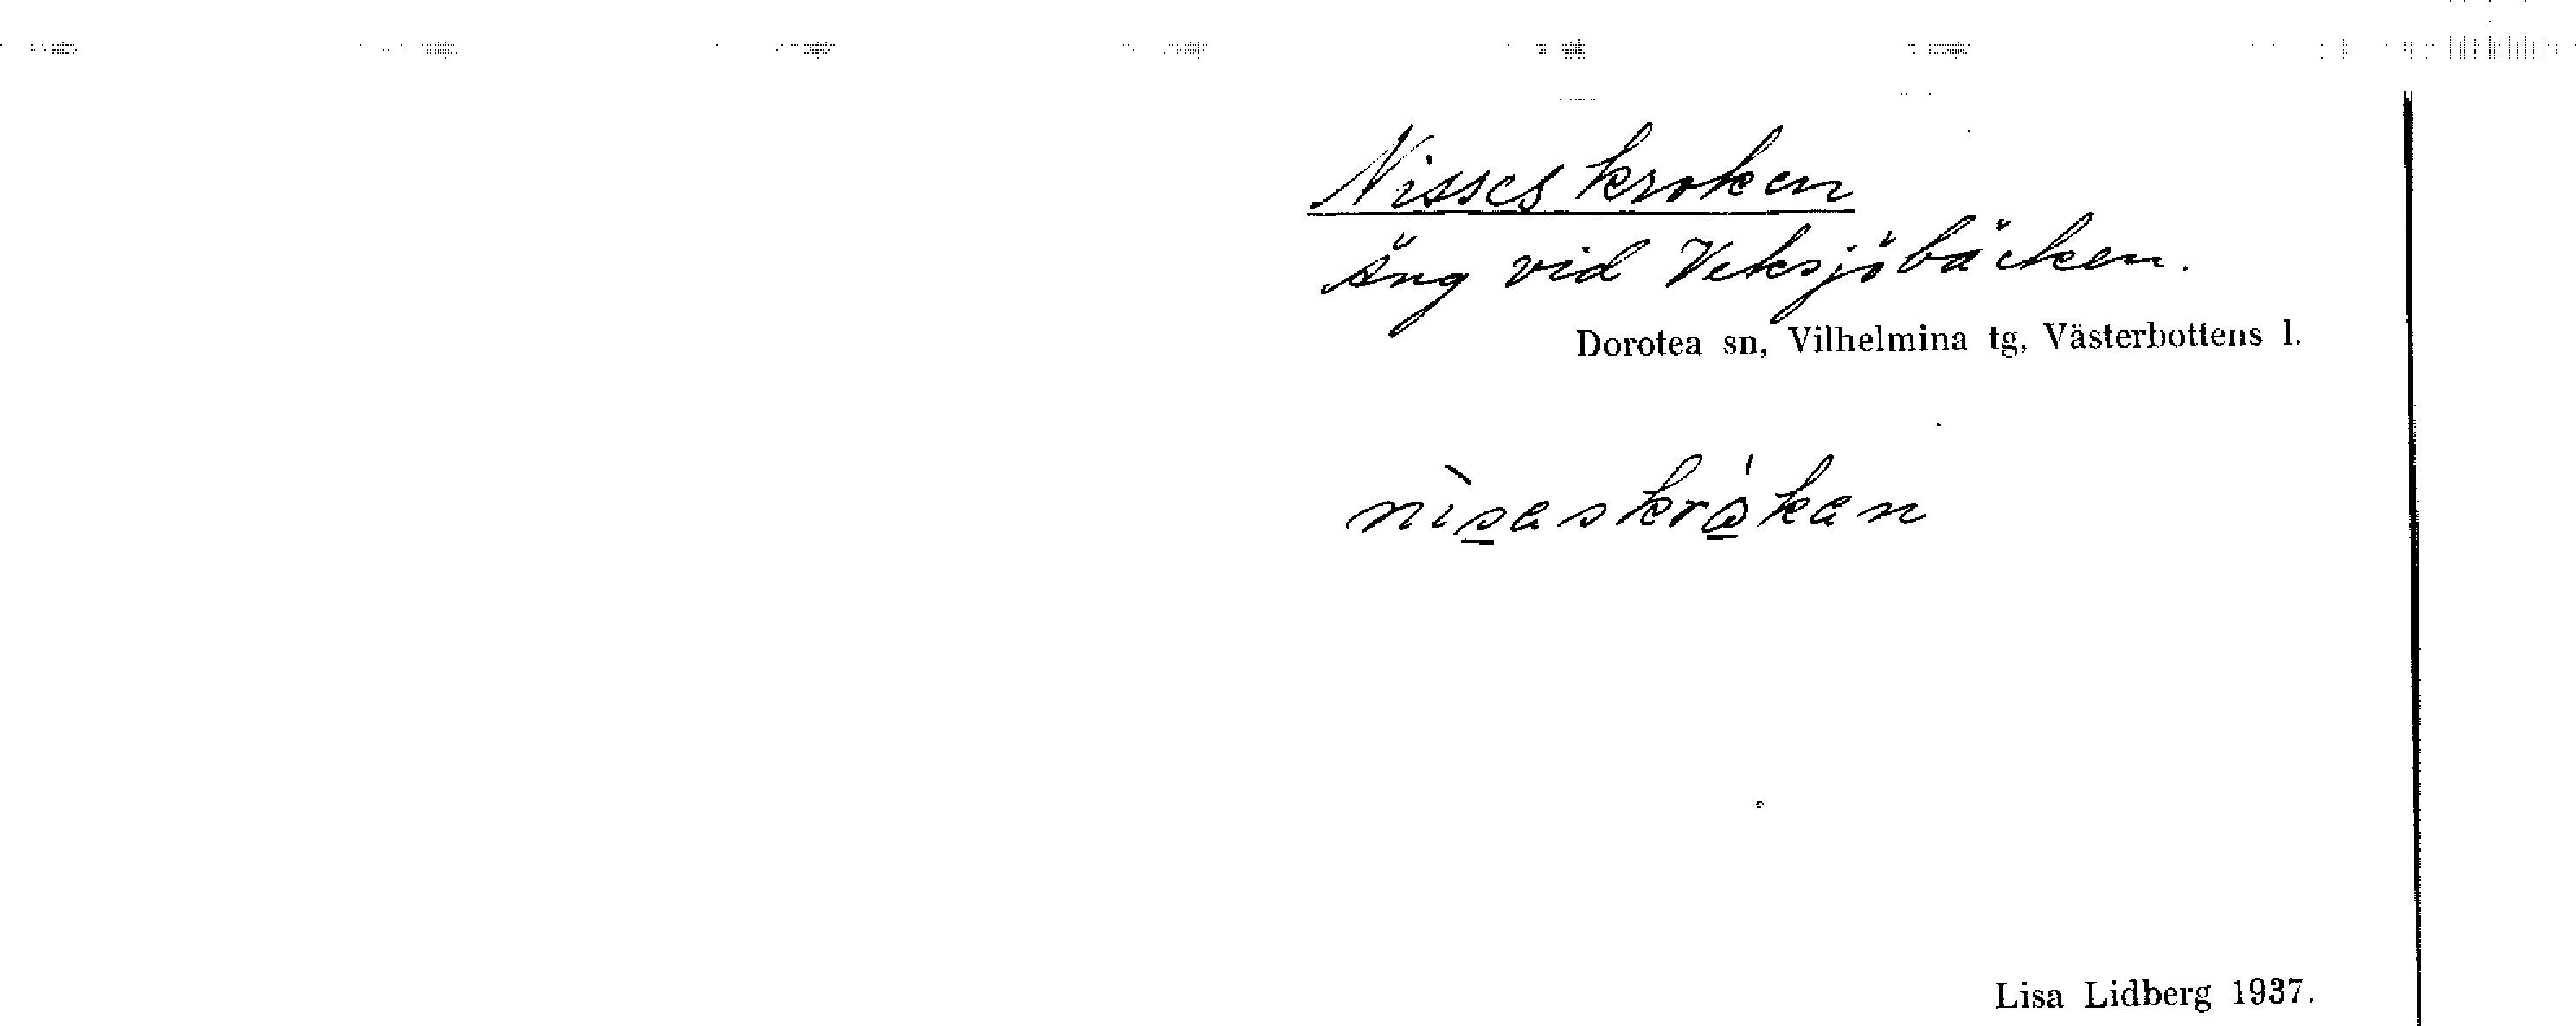 Nisses kroken
äng vid Veksjöbäcken.
Dorotea sn, Vilhelmina tg, Västerbottens l.
nìs̲askrǻ̲kan
Lisa Lidberg 1937.